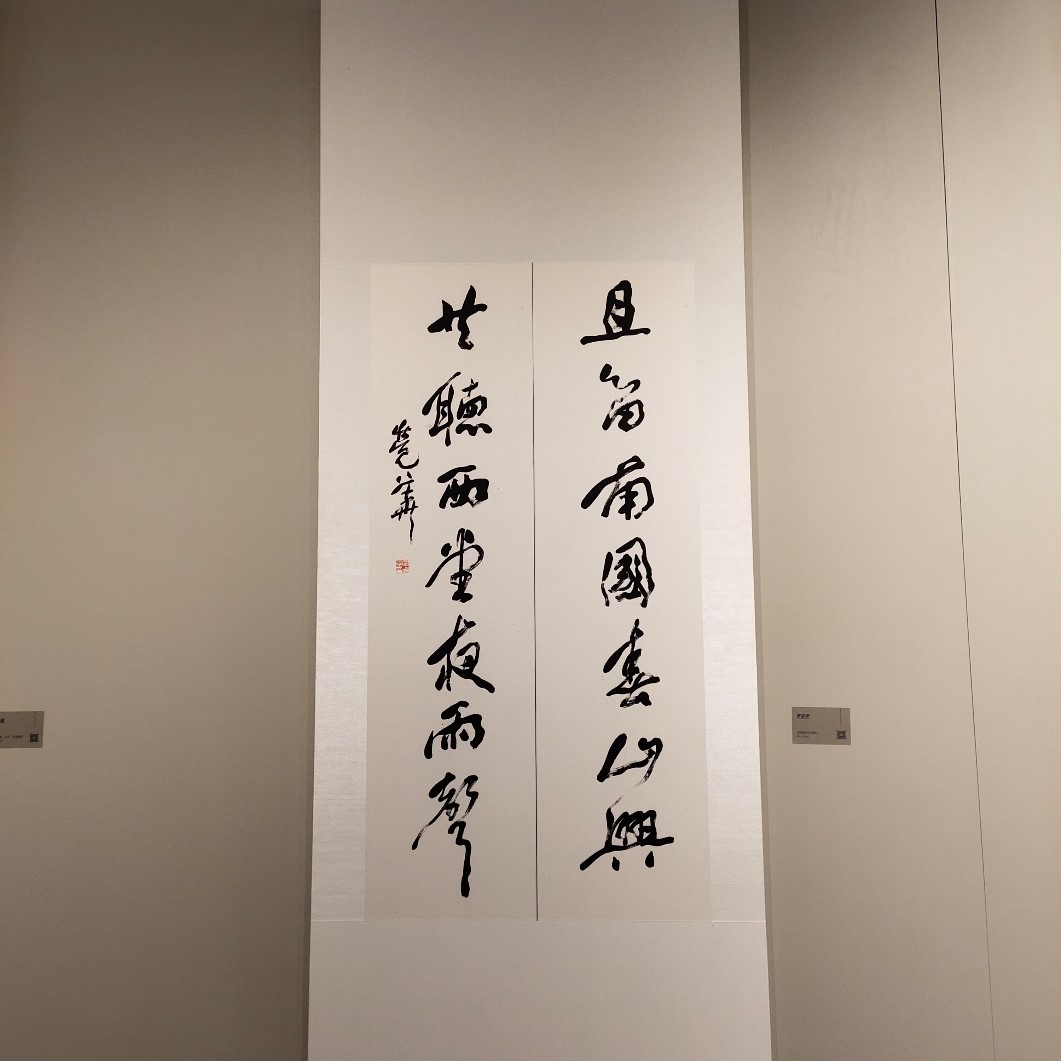 且留南國春山興
共聽西堂夜雨聲